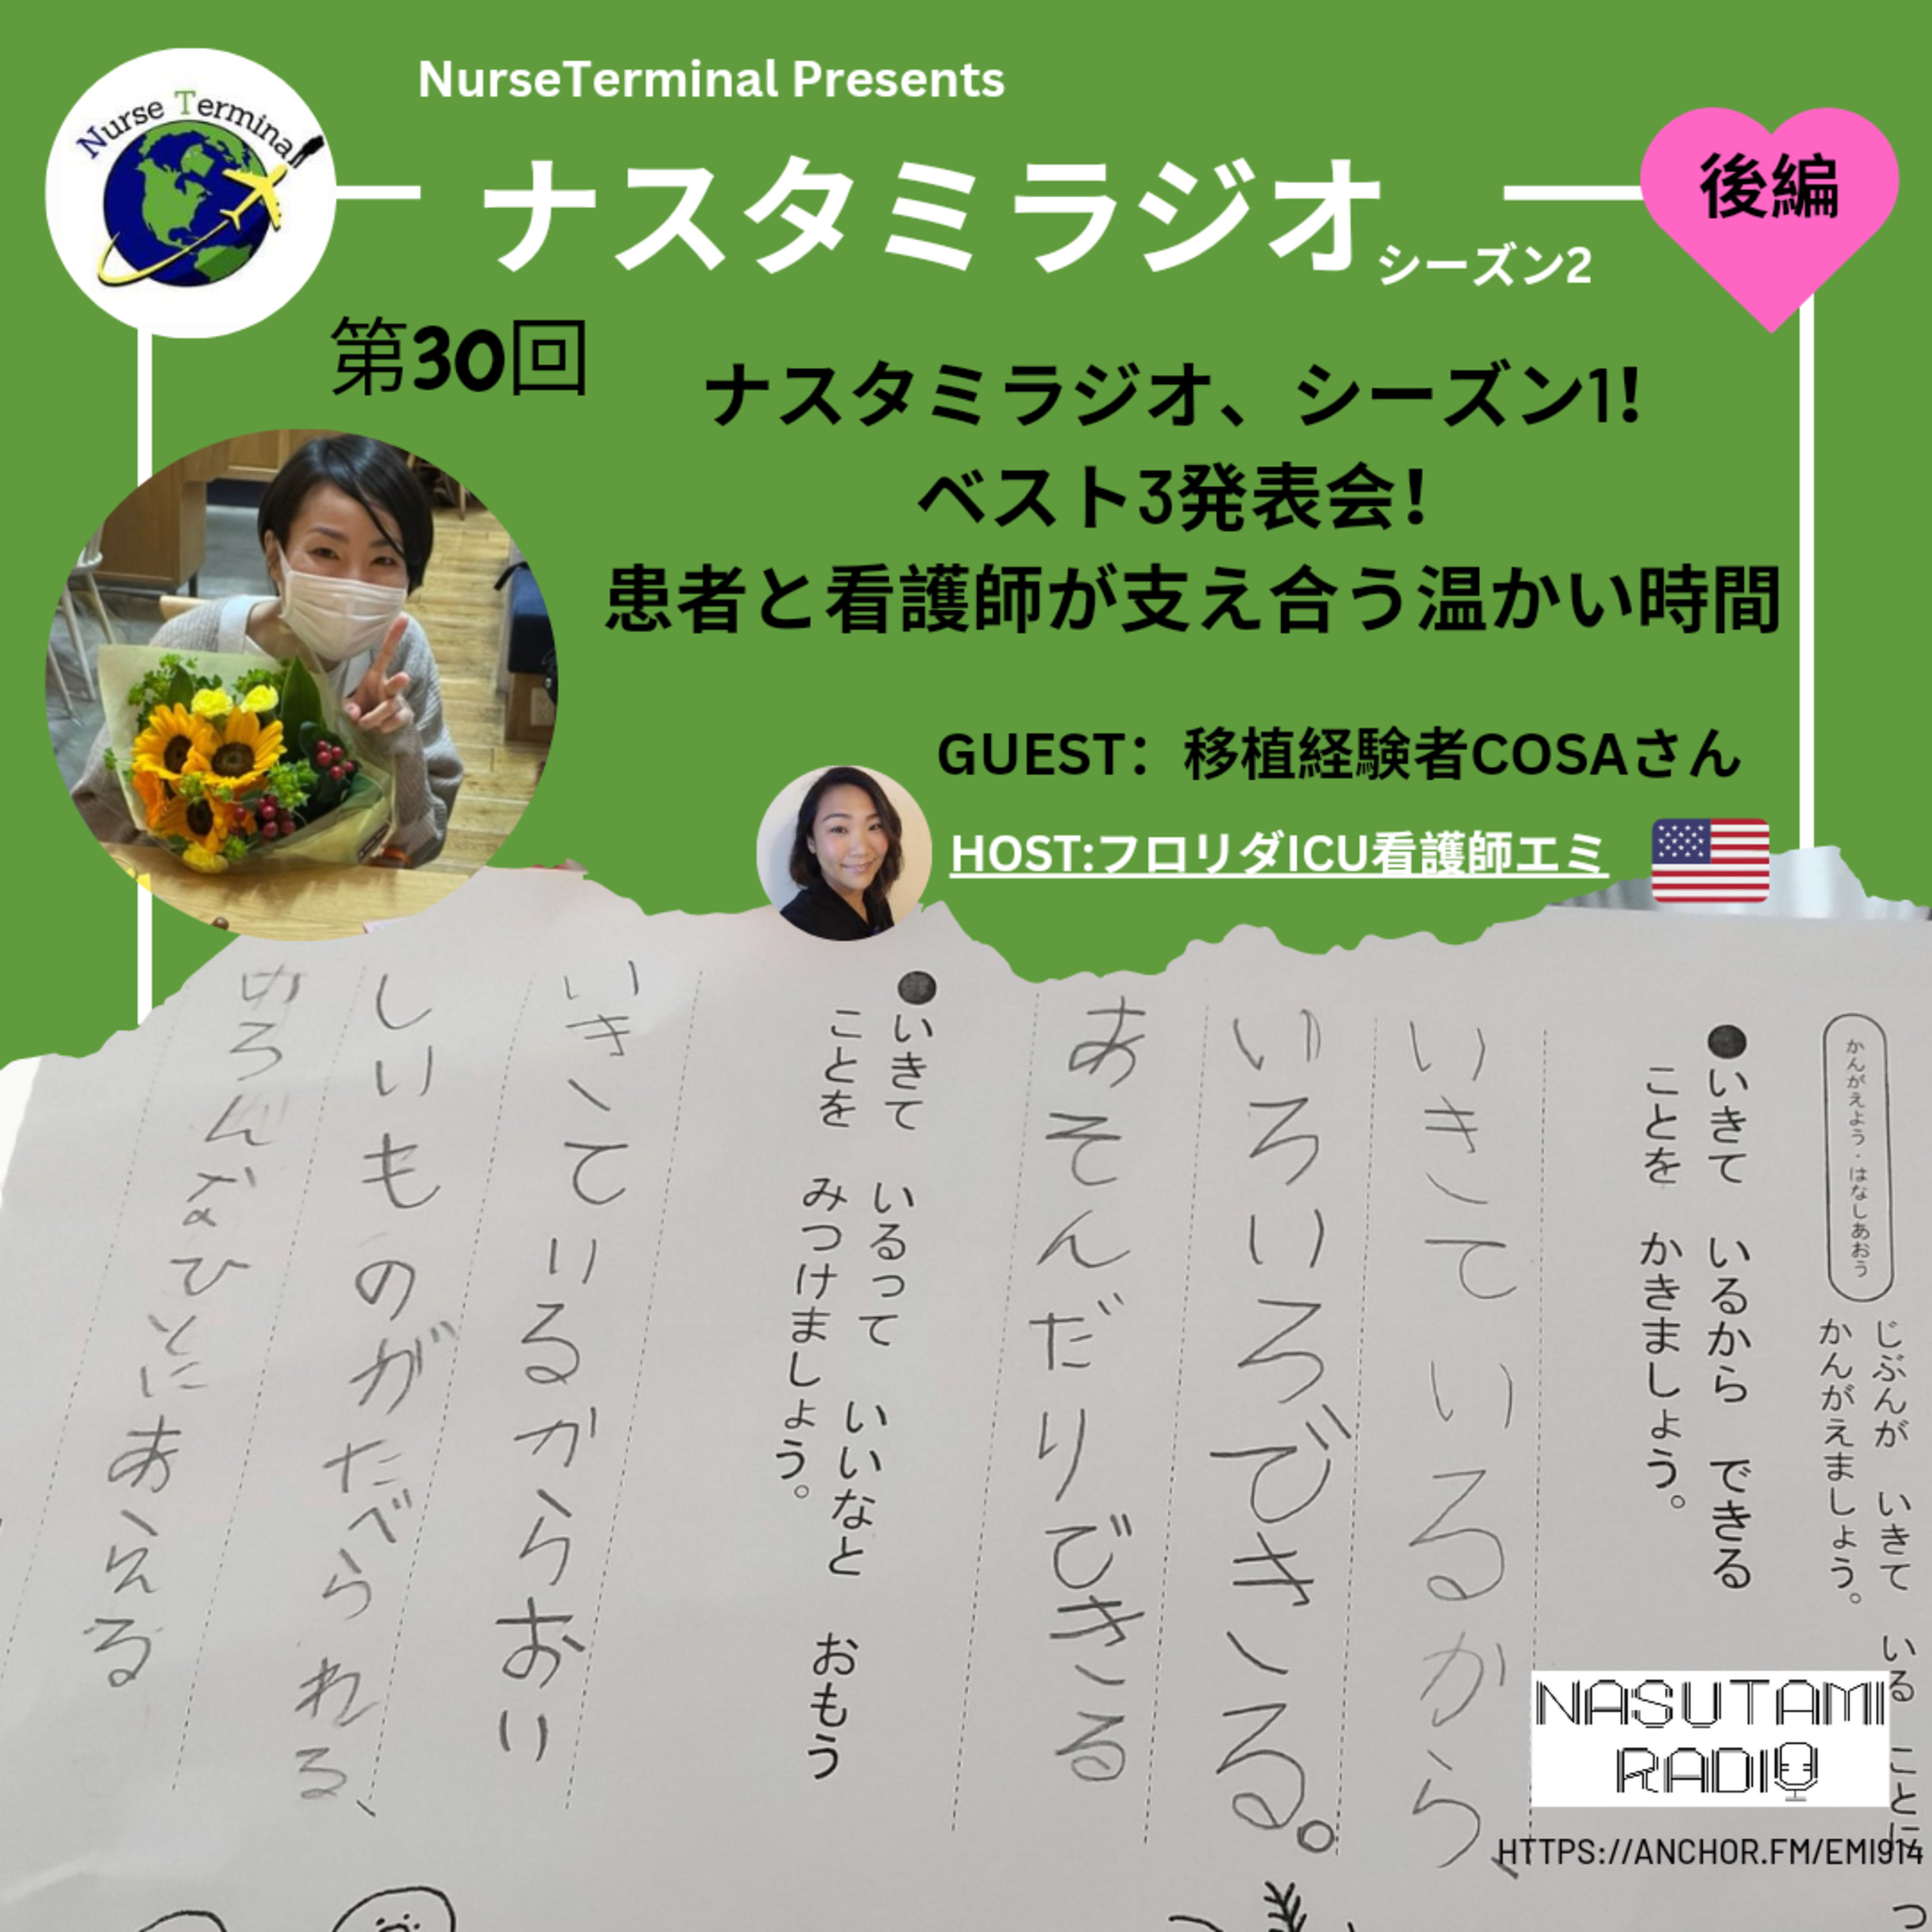 NurseTerminal Presents
Nurse Terminal
ナスタミラジオ
シーズン2
後編
第30回
ナスタミラジオ、シーズン1!
ベスト3発表会!
患者と看護師が支え合う温かい時間
GUEST：移植経験者COSAさん
HOST:フロリダICU看護師エミ
かんがえよう・はなしあおう
じぶんが いきて いる ことに つ
かんがえましょう。
●いきて いるから できる
ことを かきましょう。
いきているから、
いろいろできる。
あそんだりできる
●いきて いるって いいなと おもう
ことを みつけましょう。
いきているからおい
しいものがたべられる、
いろんなひとにあえる
NASUTAMI
RADIO
HTTPS://ANCHOR.FM/EMI914